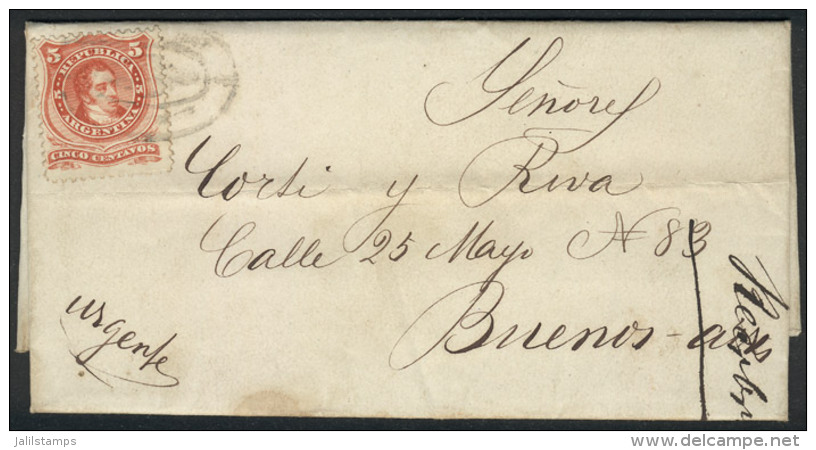 5 5
REPUBLICA
5 5
ARGENTINA
CINCO CENTAVOS
Señores
Corti y Riva
Calle 25 Mayo N 83
Buenos-aires
urgente
jalilstamps
www.delcampe.net